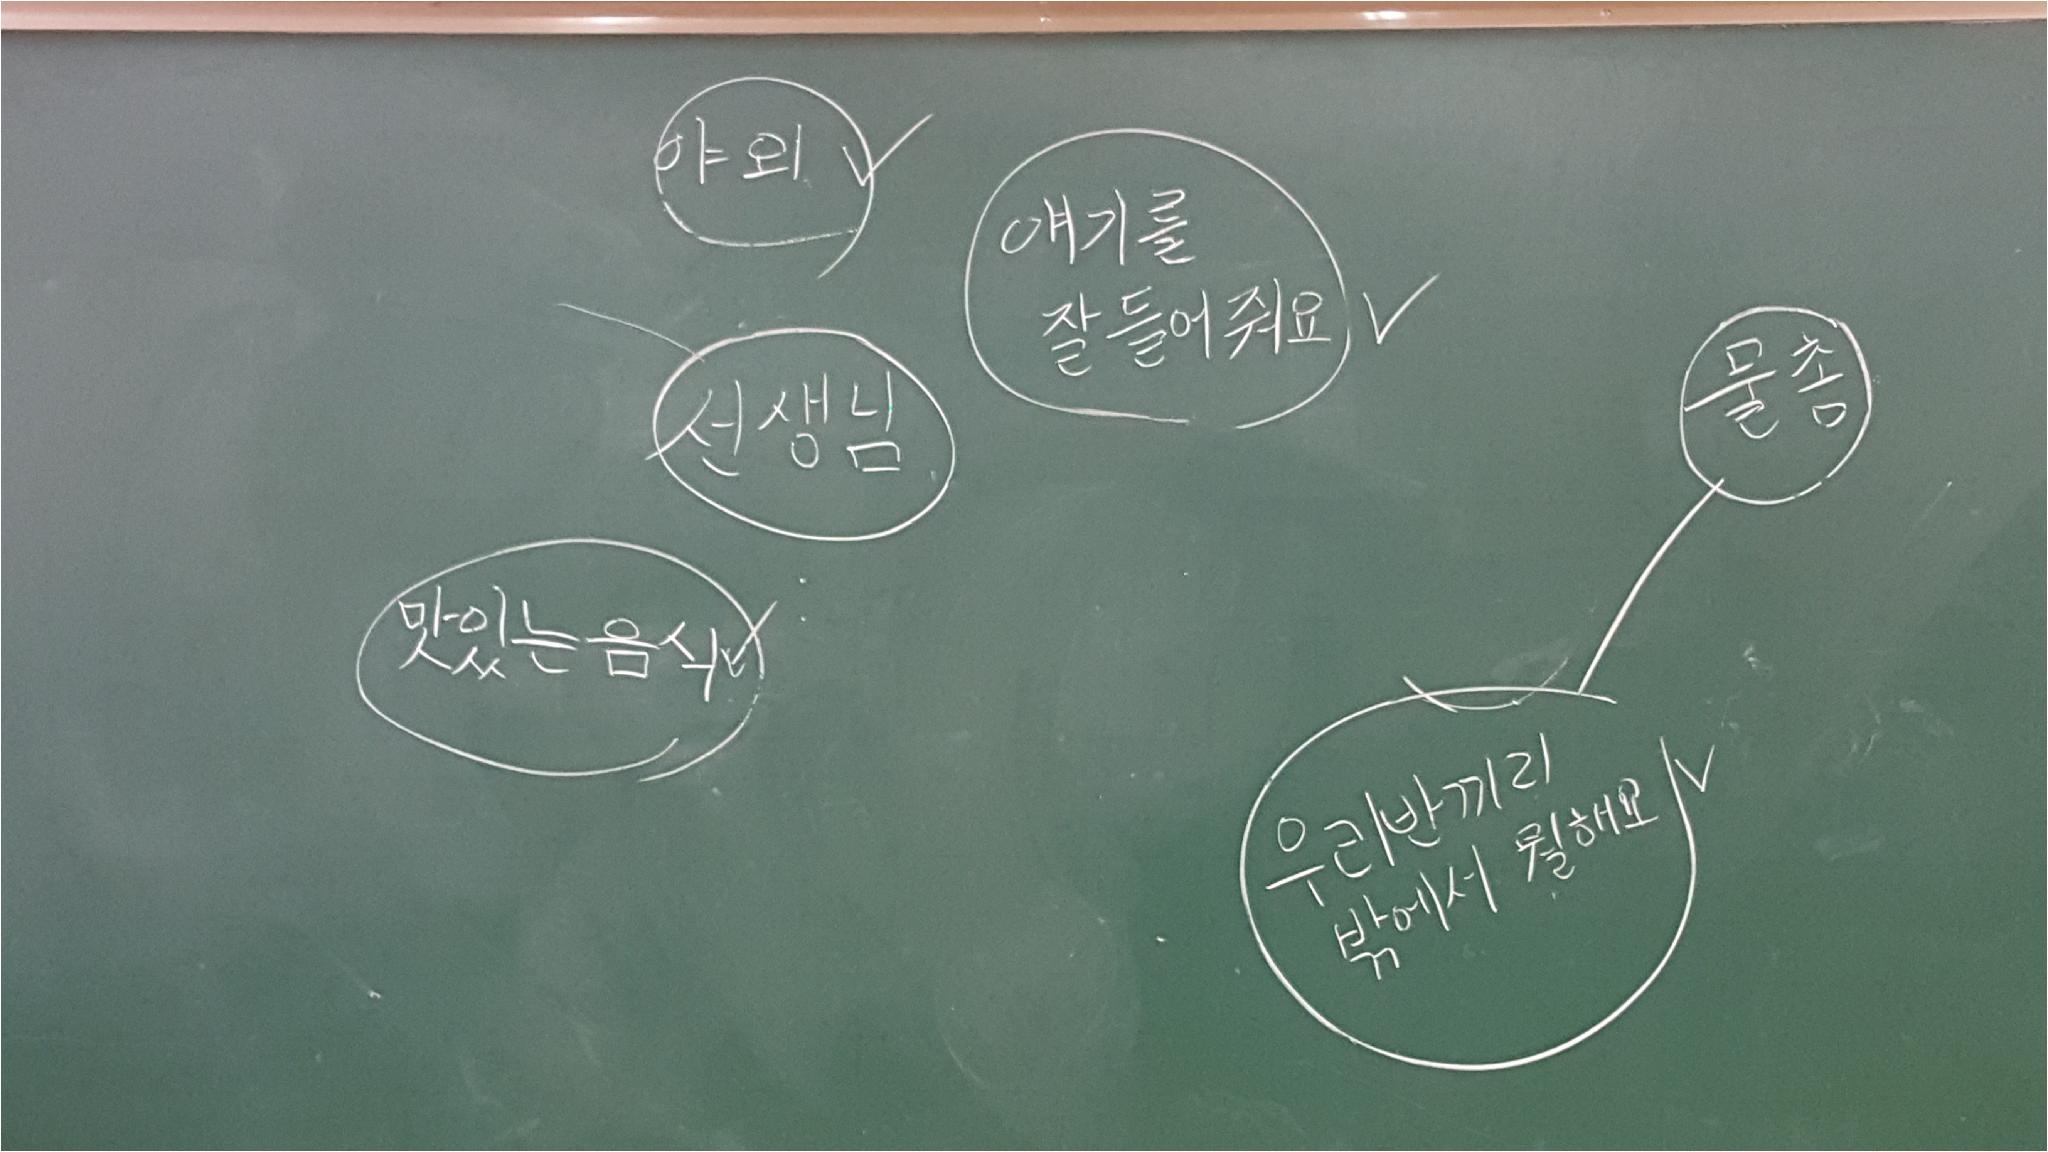 야외
얘기를
잘 들어줘요
선생님
물총
맛있는 음식
우리반끼리
밖에서 뭘해요